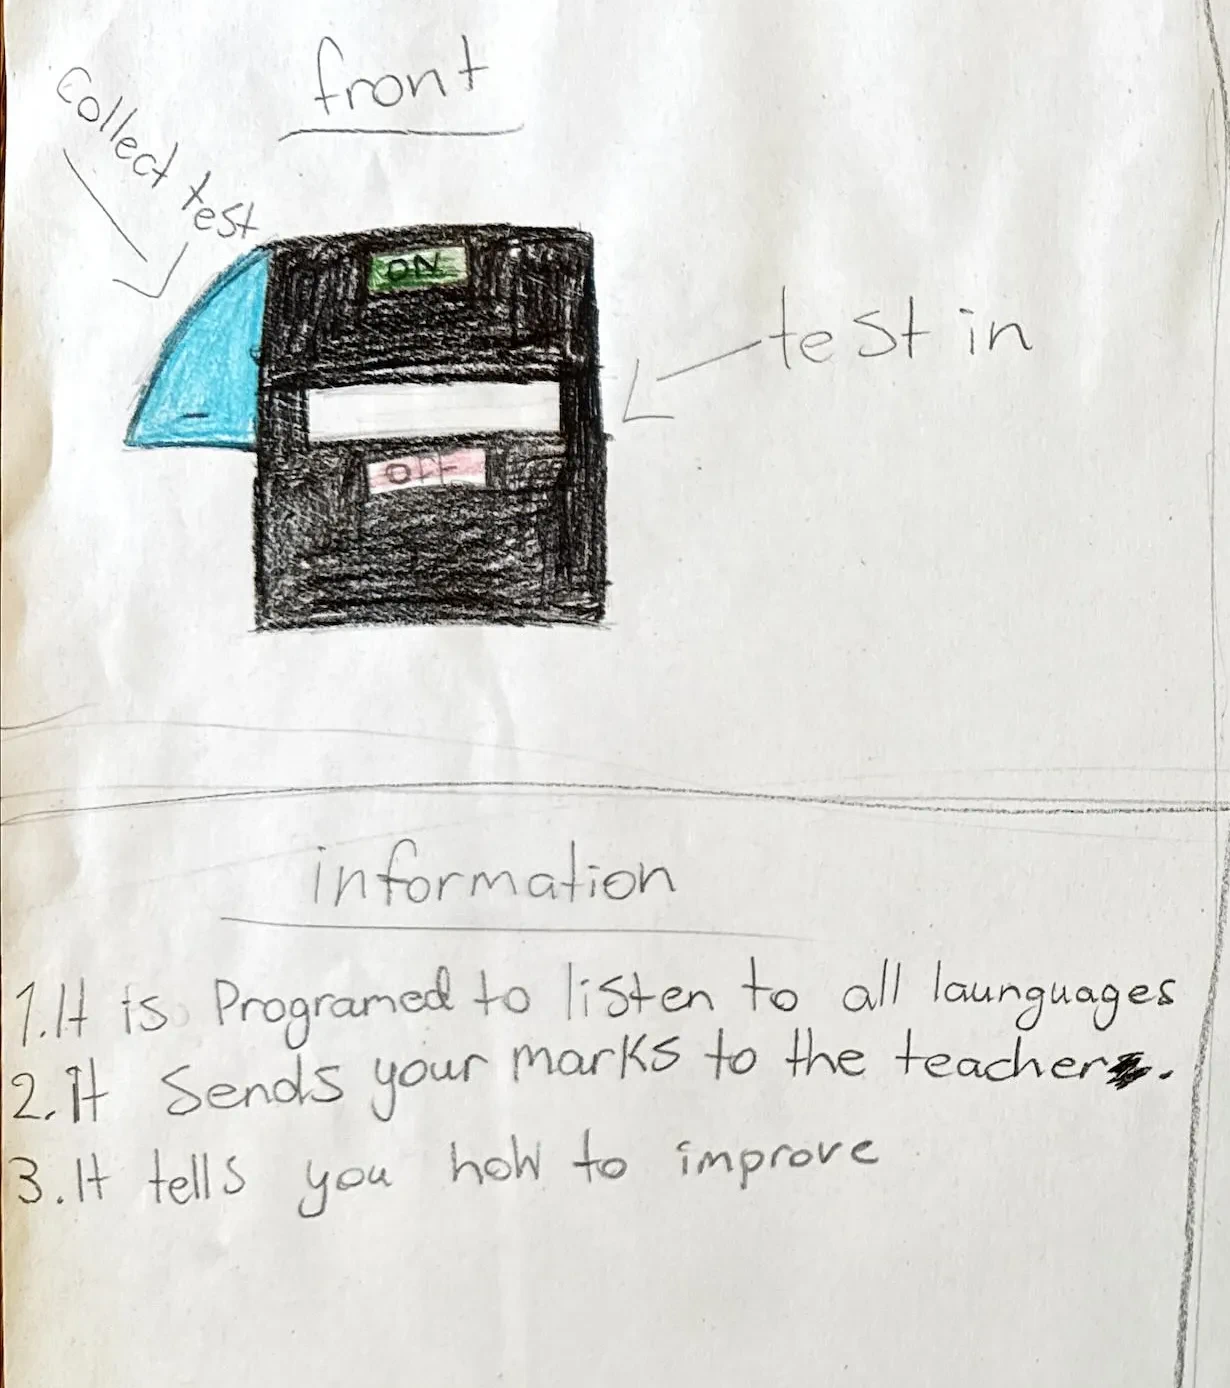 front
collect test
ON
test in
OFF
information
1. It is Programed to listen to all launguages
2. It Sends your marks to the teacher.
3. It tells you how to improve